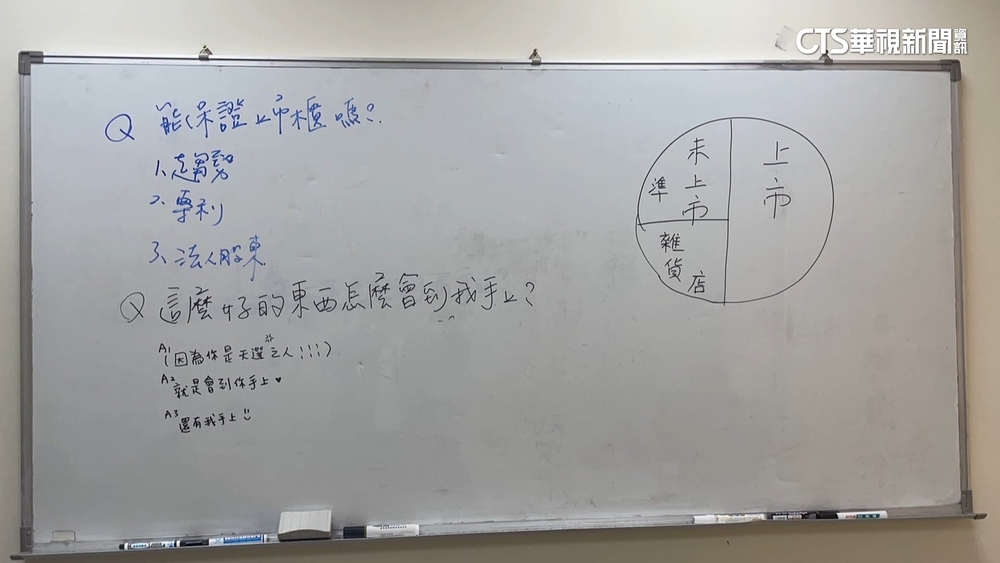 CTS華視新聞資訊
Q 能保證上市櫃嗎?
1、趨勢
2、專利
3、法人股東
Q 這麼好的東西怎麼會到我手上?
A1 (因為你是天選之人!!!)
A2 就是會到你手上♥
A3 還有我手上!!
準 未上市
雜貨店
上市